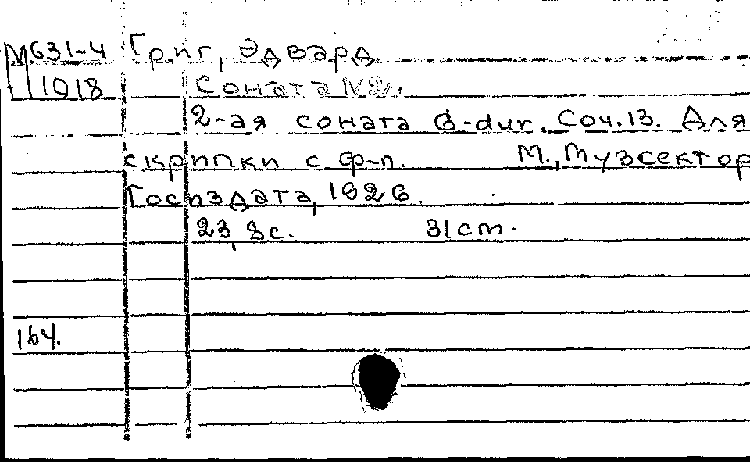 М631-4 Григ, Эдвард
1018 Соната №2.
2-ая соната G-dur. Соч.13. Для
скрипки с ф-п. М., Музсектор
Госиздата, 1926.
23, 8с. 31cm.
164.